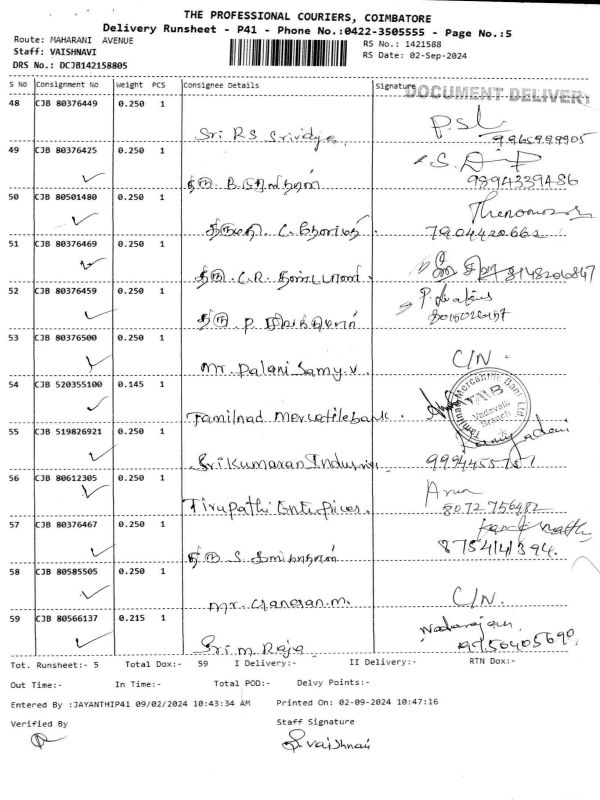 THE PROFESSIONAL COURIERS, COIMBATORE
Delivery Runsheet - P41 - Phone No.:0422-3505555 - Page No.:5
Route: MAHARANI AVENUE
RS No.: 1421588
Staff: VAISHNAVI
RS Date: 02-Sep-2024
DRS No.: DCJB142158805
S No Consignment No Weight PCS Consignee Details Signature
DOCUMENT DELIVERY
48 CJB 80376449 0.250 1
Sri RS Srividya
9965999905
49 CJB 80376425 0.250 1
திரு. B.
9894339486
50 CJB 80501480 0.250 1
திருமதி. C. கோமதி
7904420662
51 CJB 80376469 0.250 1
திரு. C.R. தண்டபாணி.
8148206847
52 CJB 80376459 0.250 1
திரு P.
53 CJB 80376500 0.250 1
Mr. Palani Samy.V.
C/N.
54 CJB 520355100 0.145 1
Tamilnad Mercatilebank.
Tamilnad Mercantile Bank Ltd
TMB
Vadavalli
Branch
55 CJB 519826921 0.250 1
Sri Kumaran
56 CJB 80612305 0.250 1
Tirupathi Enterprices.
Arun
8072756482
57 CJB 80376467 0.250 1
திரு S.
8754141394.
58 CJB 80585505 0.250 1
Mr.
C/N.
59 CJB 80566137 0.215 1
Sri. M. Raja
Natarajan
9750405690
Tot. Runsheet:- 5 Total Dox:- 59 I Delivery:- II Delivery:- RTN Dox:-
Out Time:- In Time:- Total POD:- Delvy Points:-
Entered By :JAYANTHIP41 09/02/2024 10:43:34 AM Printed On: 02-09-2024 10:47:16
Verified By Staff Signature
Vaishnavi